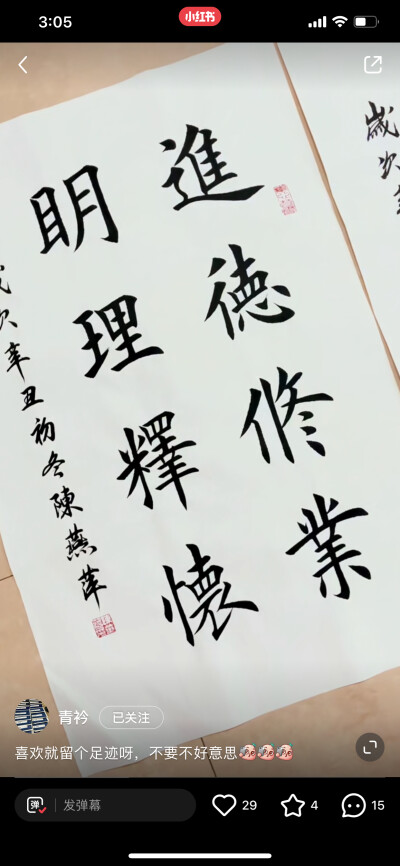 3:05
小红书
進德修業
明理釋懷
歲次辛丑初冬陳燕萍
歲次辛
青衿
已关注
喜欢就留个足迹呀，不要不好意思
弹
发弹幕
29
4
15